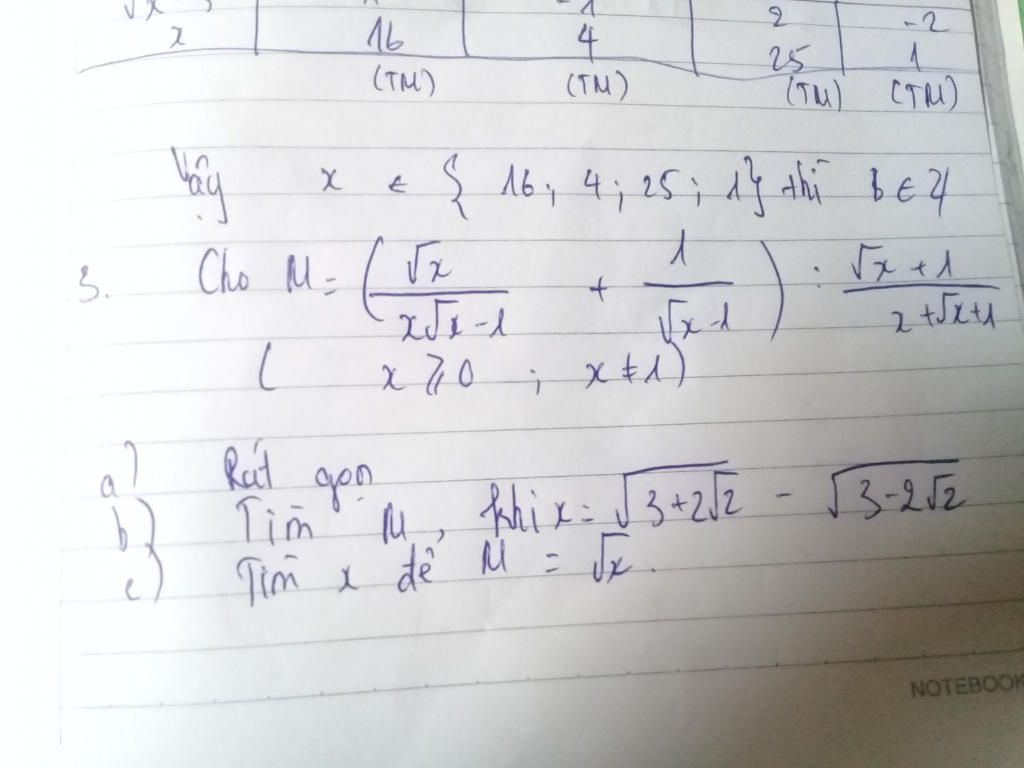 x 16 4 2 -2
25 1
(TM) (TM) (TM) (TM)
Vậy x ∈ { 16; 4; 25; 1} thì b ∈ Z
3. Cho M = ( √x / (x√x - 1) + 1 / (√x - 1) ) : (√x + 1) / (x + √x + 1)
( x ⩾ 0 ; x ≠ 1)
a) Rút gọn
b) Tìm M, khi x = √(3 + 2√2) - √(3 - 2√2)
c) Tìm x để M = √x.
NOTEBOOK